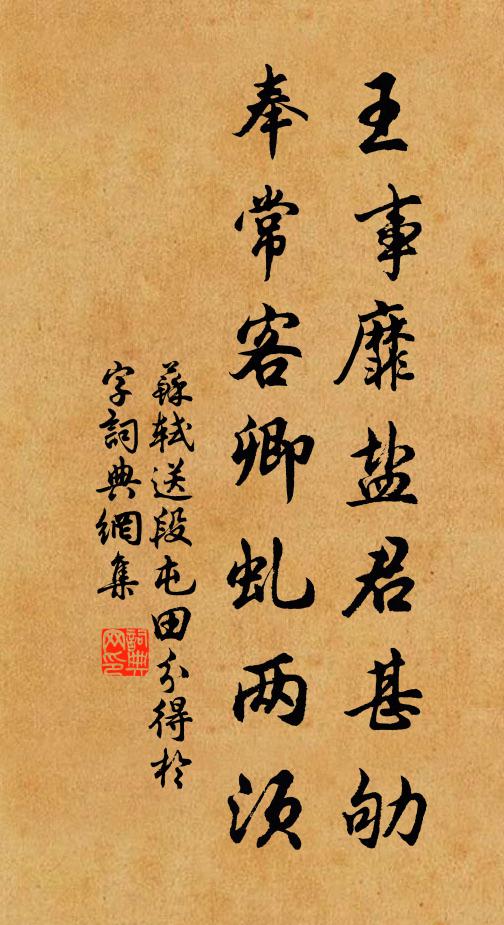 王事靡盐君甚劬
奉常客卿虬两须
蘇軾送段屯田分得於
字詞典網集
詞典
网印